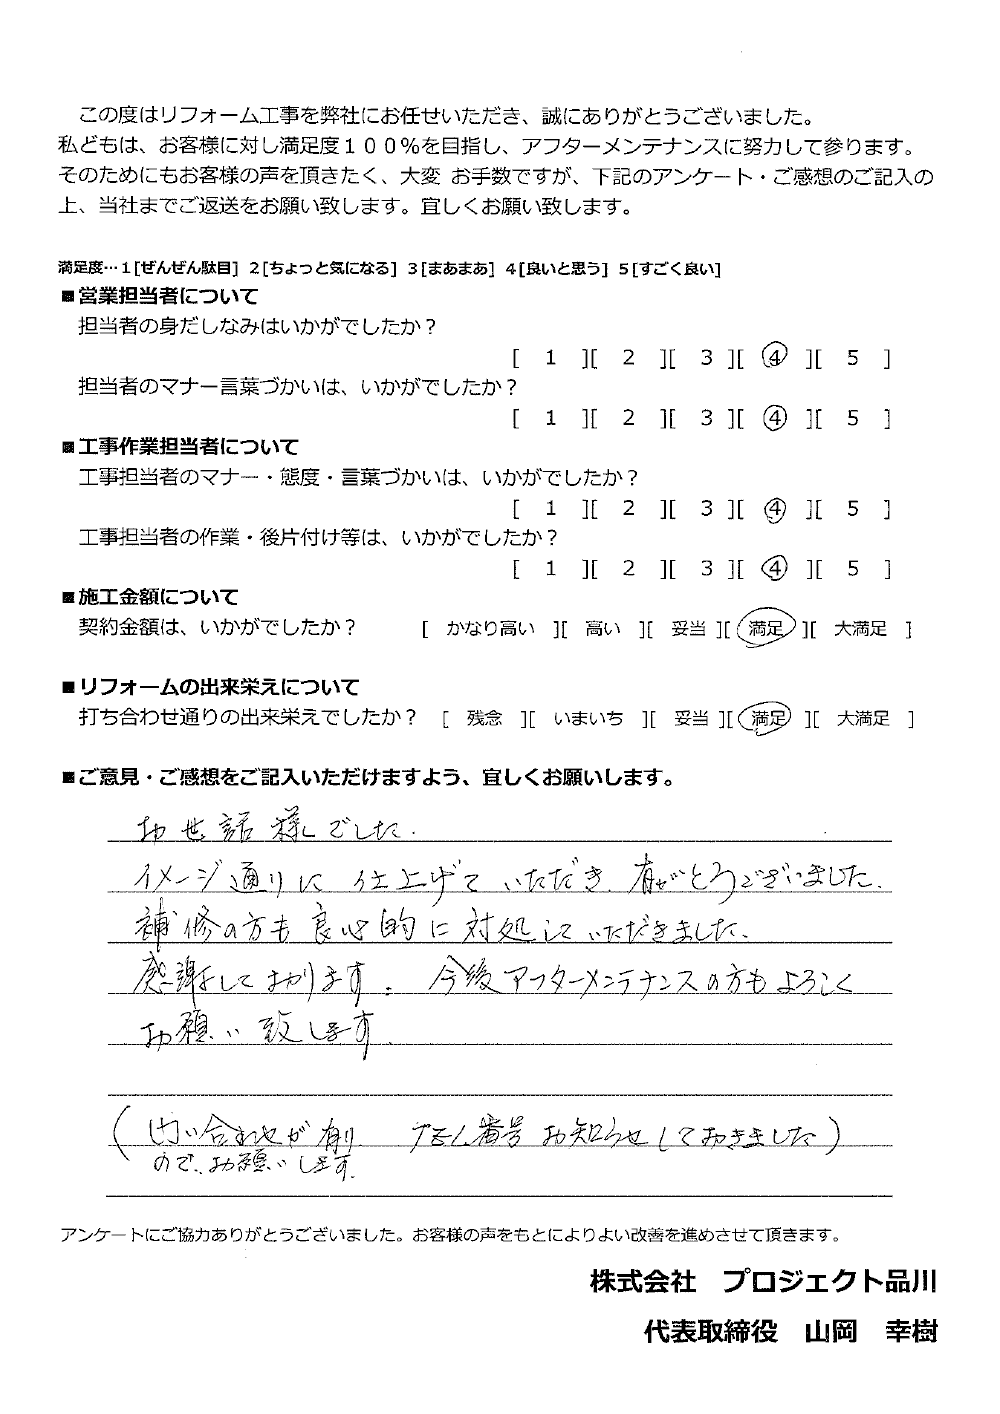 この度はリフォーム工事を弊社にお任せいただき、誠にありがとうございました。
私どもは、お客様に対し満足度１００％を目指し、アフターメンテナンスに努力して参ります。
そのためにもお客様の声を頂きたく、大変 お手数ですが、下記のアンケート・ご感想のご記入の
上、当社までご返送をお願い致します。宜しくお願い致します。
満足度…１[ぜんぜん駄目] ２[ちょっと気になる] ３[まあまあ] ４[良いと思う] ５[すごく良い]
■営業担当者について
担当者の身だしなみはいかがでしたか？
[ 1 ][ 2 ][ 3 ][ 4 ][ 5 ]
担当者のマナー言葉づかいは、いかがでしたか？
[ 1 ][ 2 ][ 3 ][ 4 ][ 5 ]
■工事作業担当者について
工事担当者のマナー・態度・言葉づかいは、いかがでしたか？
[ 1 ][ 2 ][ 3 ][ 4 ][ 5 ]
工事担当者の作業・後片付け等は、いかがでしたか？
[ 1 ][ 2 ][ 3 ][ 4 ][ 5 ]
■施工金額について
契約金額は、いかがでしたか？ [ かなり高い ][ 高い ][ 妥当 ][ 満足 ][ 大満足 ]
■リフォームの出来栄えについて
打ち合わせ通りの出来栄えでしたか？ [ 残念 ][ いまいち ][ 妥当 ][ 満足 ][ 大満足 ]
■ご意見・ご感想をご記入いただけますよう、宜しくお願いします。
お世話様でした.
イメージ通りに 仕上げて いただき 有がとうございました.
補修の方も良心的に対処していただきました.
感謝しております. 今後アフターメンテナンスの方もよろしく
お願い致します.
(問い合わせが有り 番号お知らせしておきました)
ので、お願いします.
アンケートにご協力ありがとうございました。お客様の声をもとによりよい改善を進めさせて頂きます。
株式会社 プロジェクト品川
代表取締役 山岡 幸樹